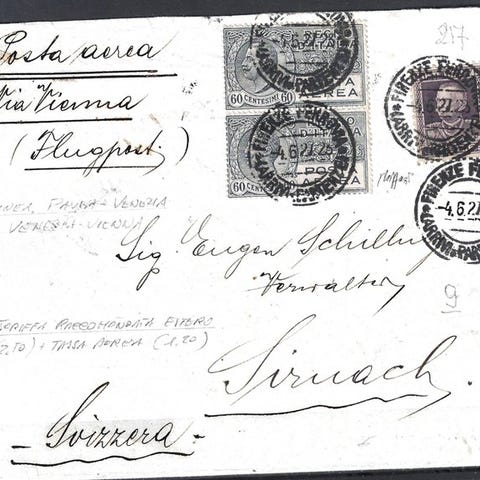 Posta aerea
Via Vienna
(Flugpost)
257
60 CENTESIMI 60
POSTA
AEREA
60 CENTESIMI 60
POSTA
AEREA
FIRENZE FERROVIA
-4.6.27.23
ARRIVI E PARTENZE
FIRENZE
-4.6.27
PADOVA - VENEZIA
VENEZIA - VIENNA
Sig. Eugen Schilling
Verwalter
9
TARIFFA RACCOMANDATA ESTERO
(2.50) + TASSA AEREA (1.20)
Sirnach.
- Svizzera -